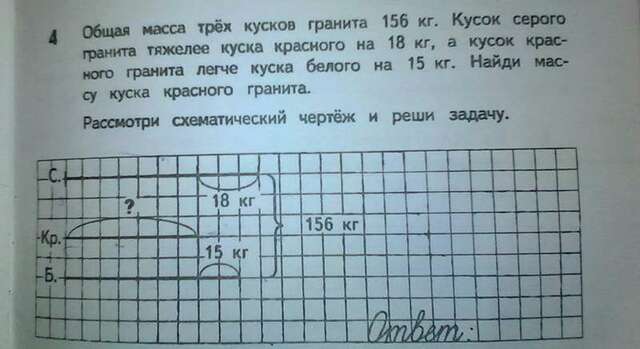 4 Общая масса трёх кусков гранита 156 кг. Кусок серого
гранита тяжелее куска красного на 18 кг, а кусок крас-
ного гранита легче куска белого на 15 кг. Найди мас-
су куска красного гранита.
Рассмотри схематический чертёж и реши задачу.
С.
18 кг
?
156 кг
Кр.
15 кг
Б.
Ответ: